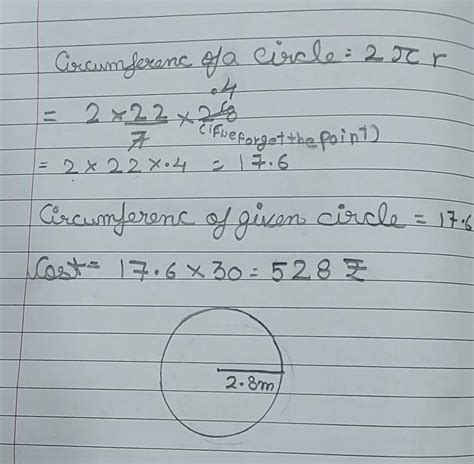 Circumferenc of a circle = 2 π r
.4
= 2 × 22/7 × 2.8
(if we forgot the point)
= 2 × 22 × .4 = 17.6
Circumferenc of given circle = 17.6
Cost = 17.6 × 30 = 528 ₹
2.8m